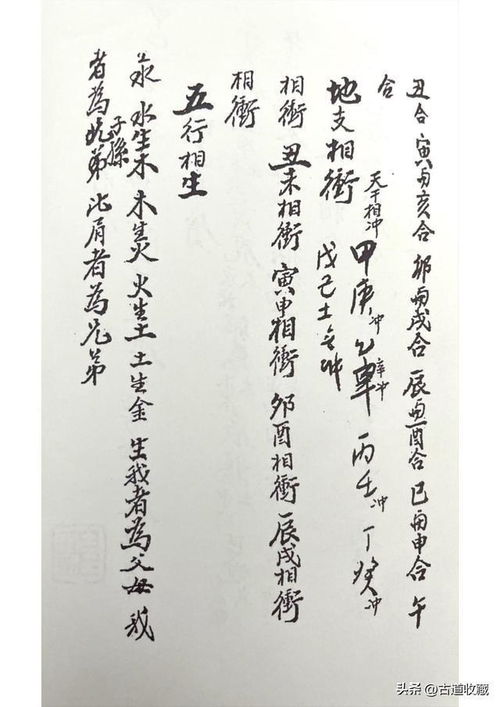 丑合 寅與亥合 卯與戌合 辰與酉合 巳與申合 午
合
地支相衝 天干相冲 甲庚冲 乙辛冲 丙壬冲 丁癸冲
戊己土無冲
相衝 丑未相衝 寅申相衝 卯酉相衝 辰戌相衝
相衝
五行相生
水生木 木生火 火生土 土生金 生我者為父母 我
者為子孫 兄弟 比肩者為兄弟
头条 @古道收藏